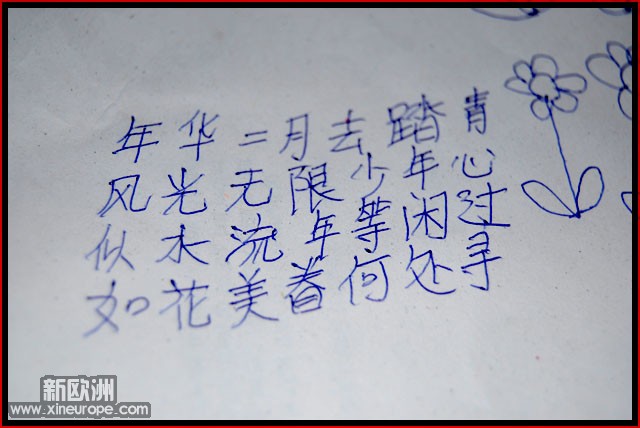 年华二月去踏青
风光无限少年心
似水流年等闲过
如花美眷何处寻
新欧洲
www.xineurope.com